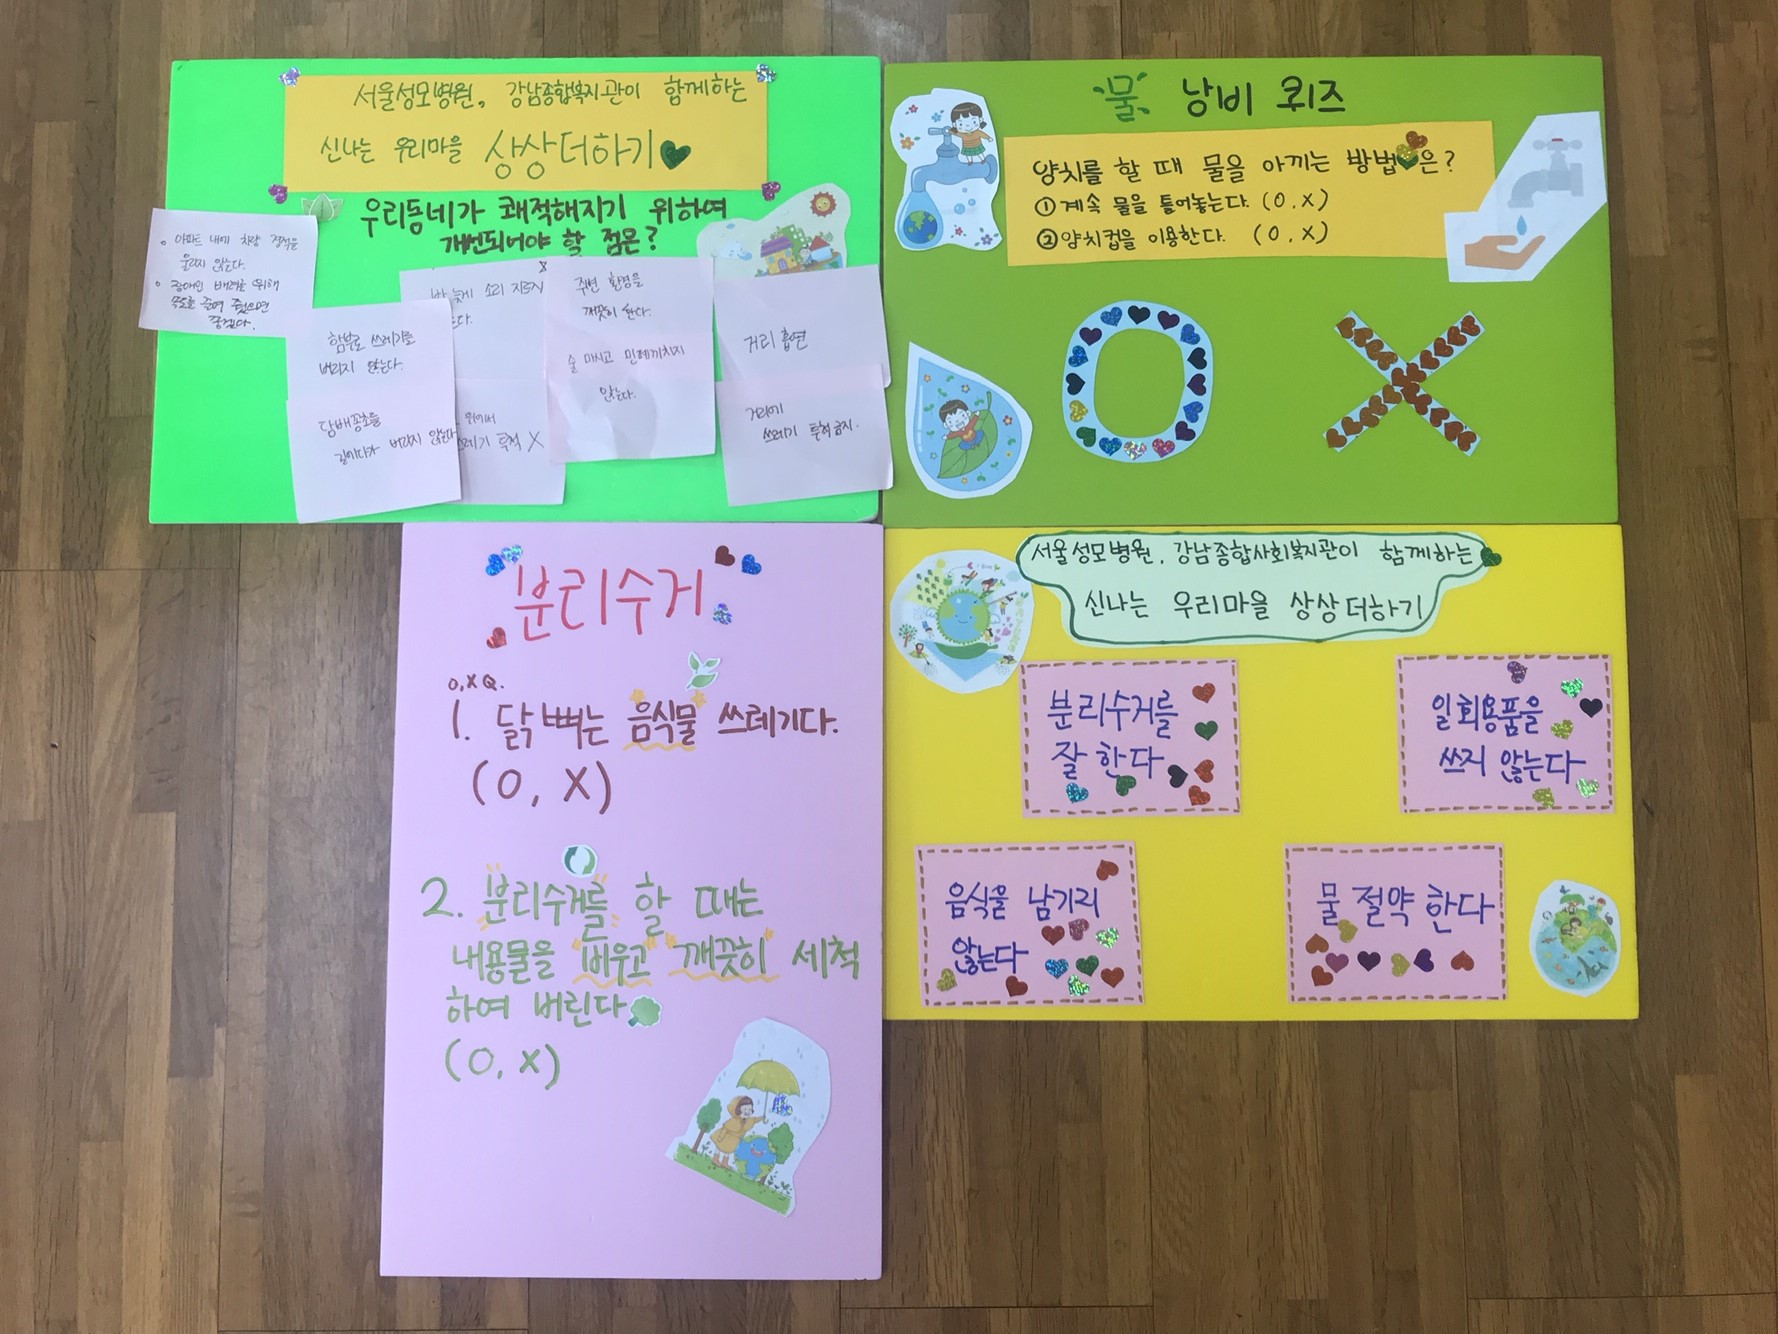 서울성모병원, 강남종합복지관이 함께하는
신나는 우리마을 상상더하기
우리동네가 쾌적해지기 위하여
개선되어야 할 점은?
• 아파트 내에 차량 경적을
울리지 않는다.
• 장애인 배려를 위해
속도를 줄여 줬으면
좋겠다.
함부로 쓰레기를
버리지 않는다.
담배꽁초를
길에다가 버리지 않는다
밤 늦게 소리 지르지
위에서
쓰레기 투척 X
주변 환경을
깨끗이 한다.
술 마시고 민폐끼치지
않는다.
거리 흡연
거리에
쓰레기 투척금지.
물 낭비 퀴즈
양치를 할 때 물을 아끼는 방법은?
① 계속 물을 틀어놓는다. (O, X)
② 양치컵을 이용한다. (O, X)
O X
분리수거
O, X Q.
1. 닭 뼈는 음식물 쓰레기다.
(O, X)
2. 분리수거를 할 때는
내용물을 비우고 깨끗히 세척
하여 버린다
(O, X)
서울성모병원, 강남종합사회복지관이 함께하는
신나는 우리마을 상상더하기
분리수거를
잘 한다
일회용품을
쓰지 않는다
음식을 남기지
않는다
물 절약 한다